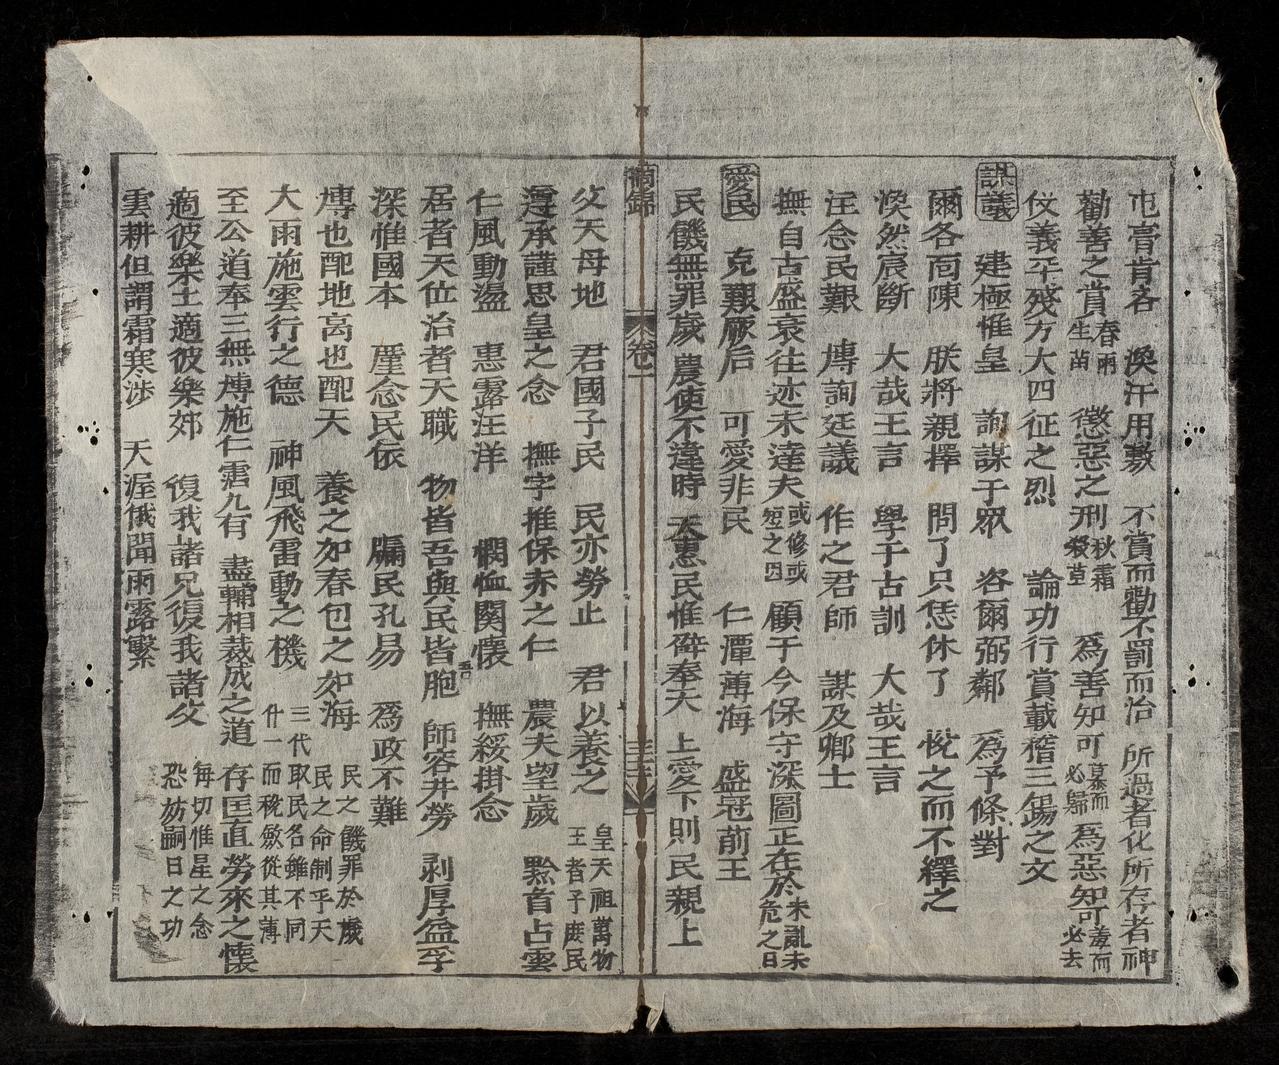 屯膏肯吝 渙汗用敷 不賞而勸不罰而治 所過者化所存者神
勸善之賞春雨生苗 懲惡之刑秋霜殺草 爲善知可慕而必歸爲惡知可羞而必去
仗義平殘方大四征之烈 論功行賞載稽三錫之文
謀議 建極惟皇 詢謀于眾 咨爾弼鄰 爲予條對
爾各面陳 朕將親擇 問了只恁休了 悅之而不繹之
渙然宸斷 大哉王言 學于古訓 大哉王言
注念民艱 博詢廷議 作之君師 謀及卿士
撫自古盛衰往迹未達夫或修或短之因 顧于今保守深圖正在於未亂未危之日
愛民 克艱厥后 可愛非民 仁潭薄海 盛冠前王
民饑無罪歲 農使不違時 天惠民惟辟奉天 上愛下則民親上
卷一
父天母地 君國子民 民亦勞止 君以養之 皇天祖萬物王者子庶民
遵承謹思皇之念 撫字推保赤之仁 農夫望歲 黔首占雲
仁風動盪 惠露汪洋 憫恤関懷 撫綏掛念
居者天位治者天職 物皆吾與民皆吾胞 師容井勞 剥厚益孚
深惟國本 厪念民依 牖民孔易 爲政不難
博也配地高也配天 養之如春包之如海 民之饑罪於歲民之命制乎天
大雨施雲行之德 神風飛雷動之機 三代取民名雖不同什一而稅斂從其薄
至公道奉三無博施仁霑九有 盡輔相裁成之道 存匡直勞來之懷
適彼樂土適彼樂郊 復我諸兄復我諸父 每切惟星之念恐妨嗣日之功
雲耕但謂霜寒涉 天渥俄聞雨露繁